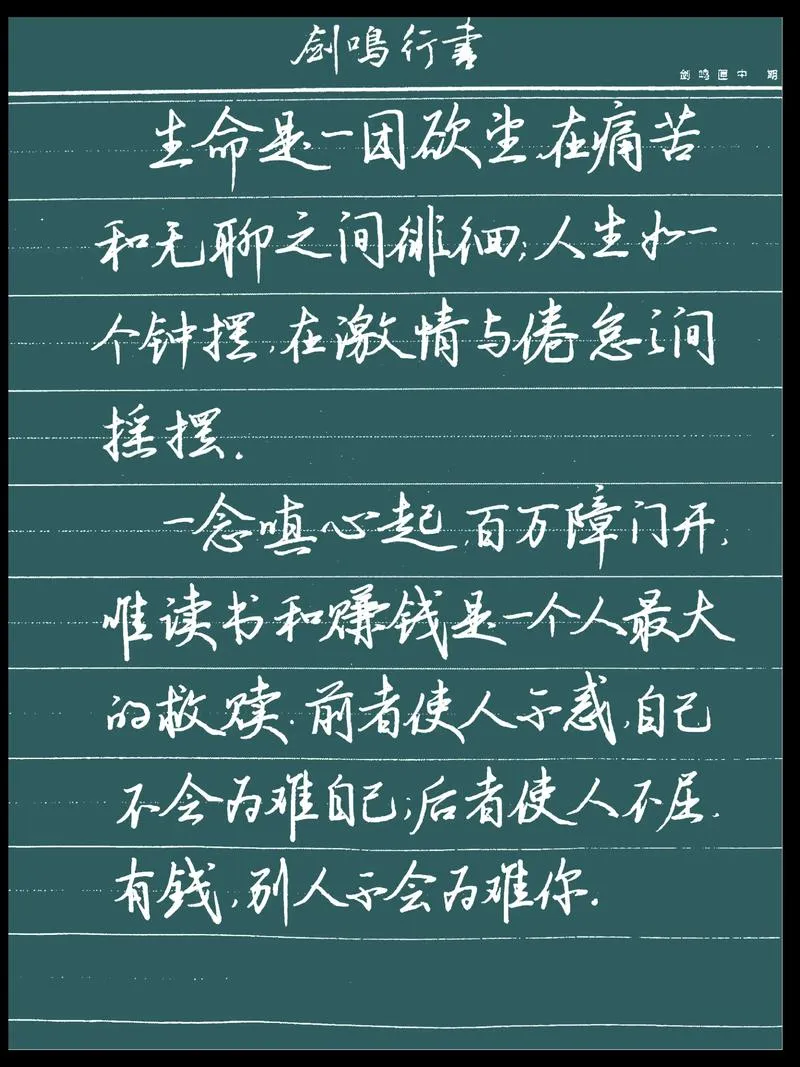 剑鸣行書
剑鸣匣中 期
生命是一团欲望,在痛苦
和无聊之间徘徊;人生如一
个钟摆,在激情与倦怠之间
摇摆.
一念嗔心起,百万障门开,
唯读书和赚钱是一个人最大
的救赎.前者使人不惑,自己
不会为难自己;后者使人不屈.
有钱,别人不会为难你.